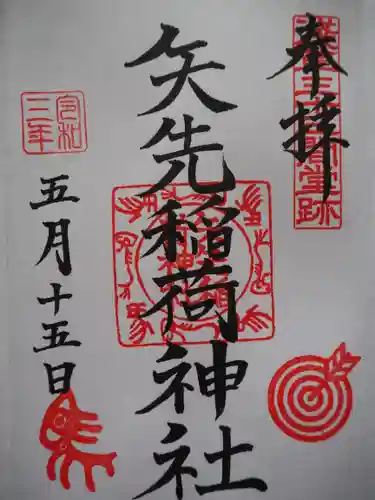 奉拝
矢先稲荷神社
令和
三年
五月十五日